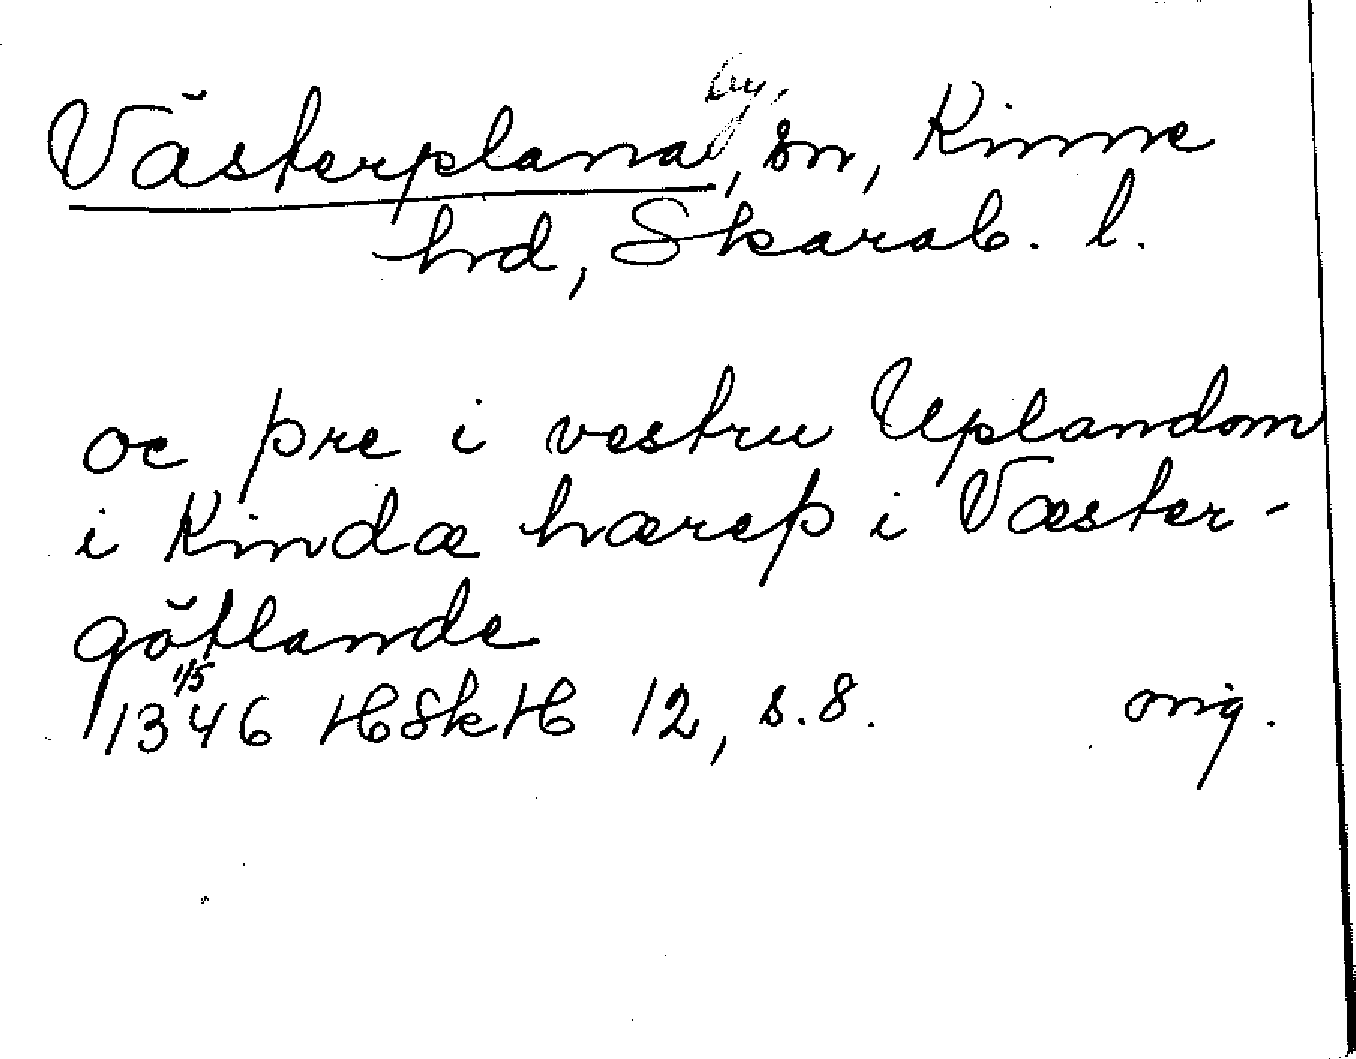 by,
Västerplana, sn, Kinne
hrd, Skarab. l.
oc þre i vestru Uplandom
i Kindæ hæreþ i Væster-
götlande
1/5
1346 HSkH 12, s. 8. orig.